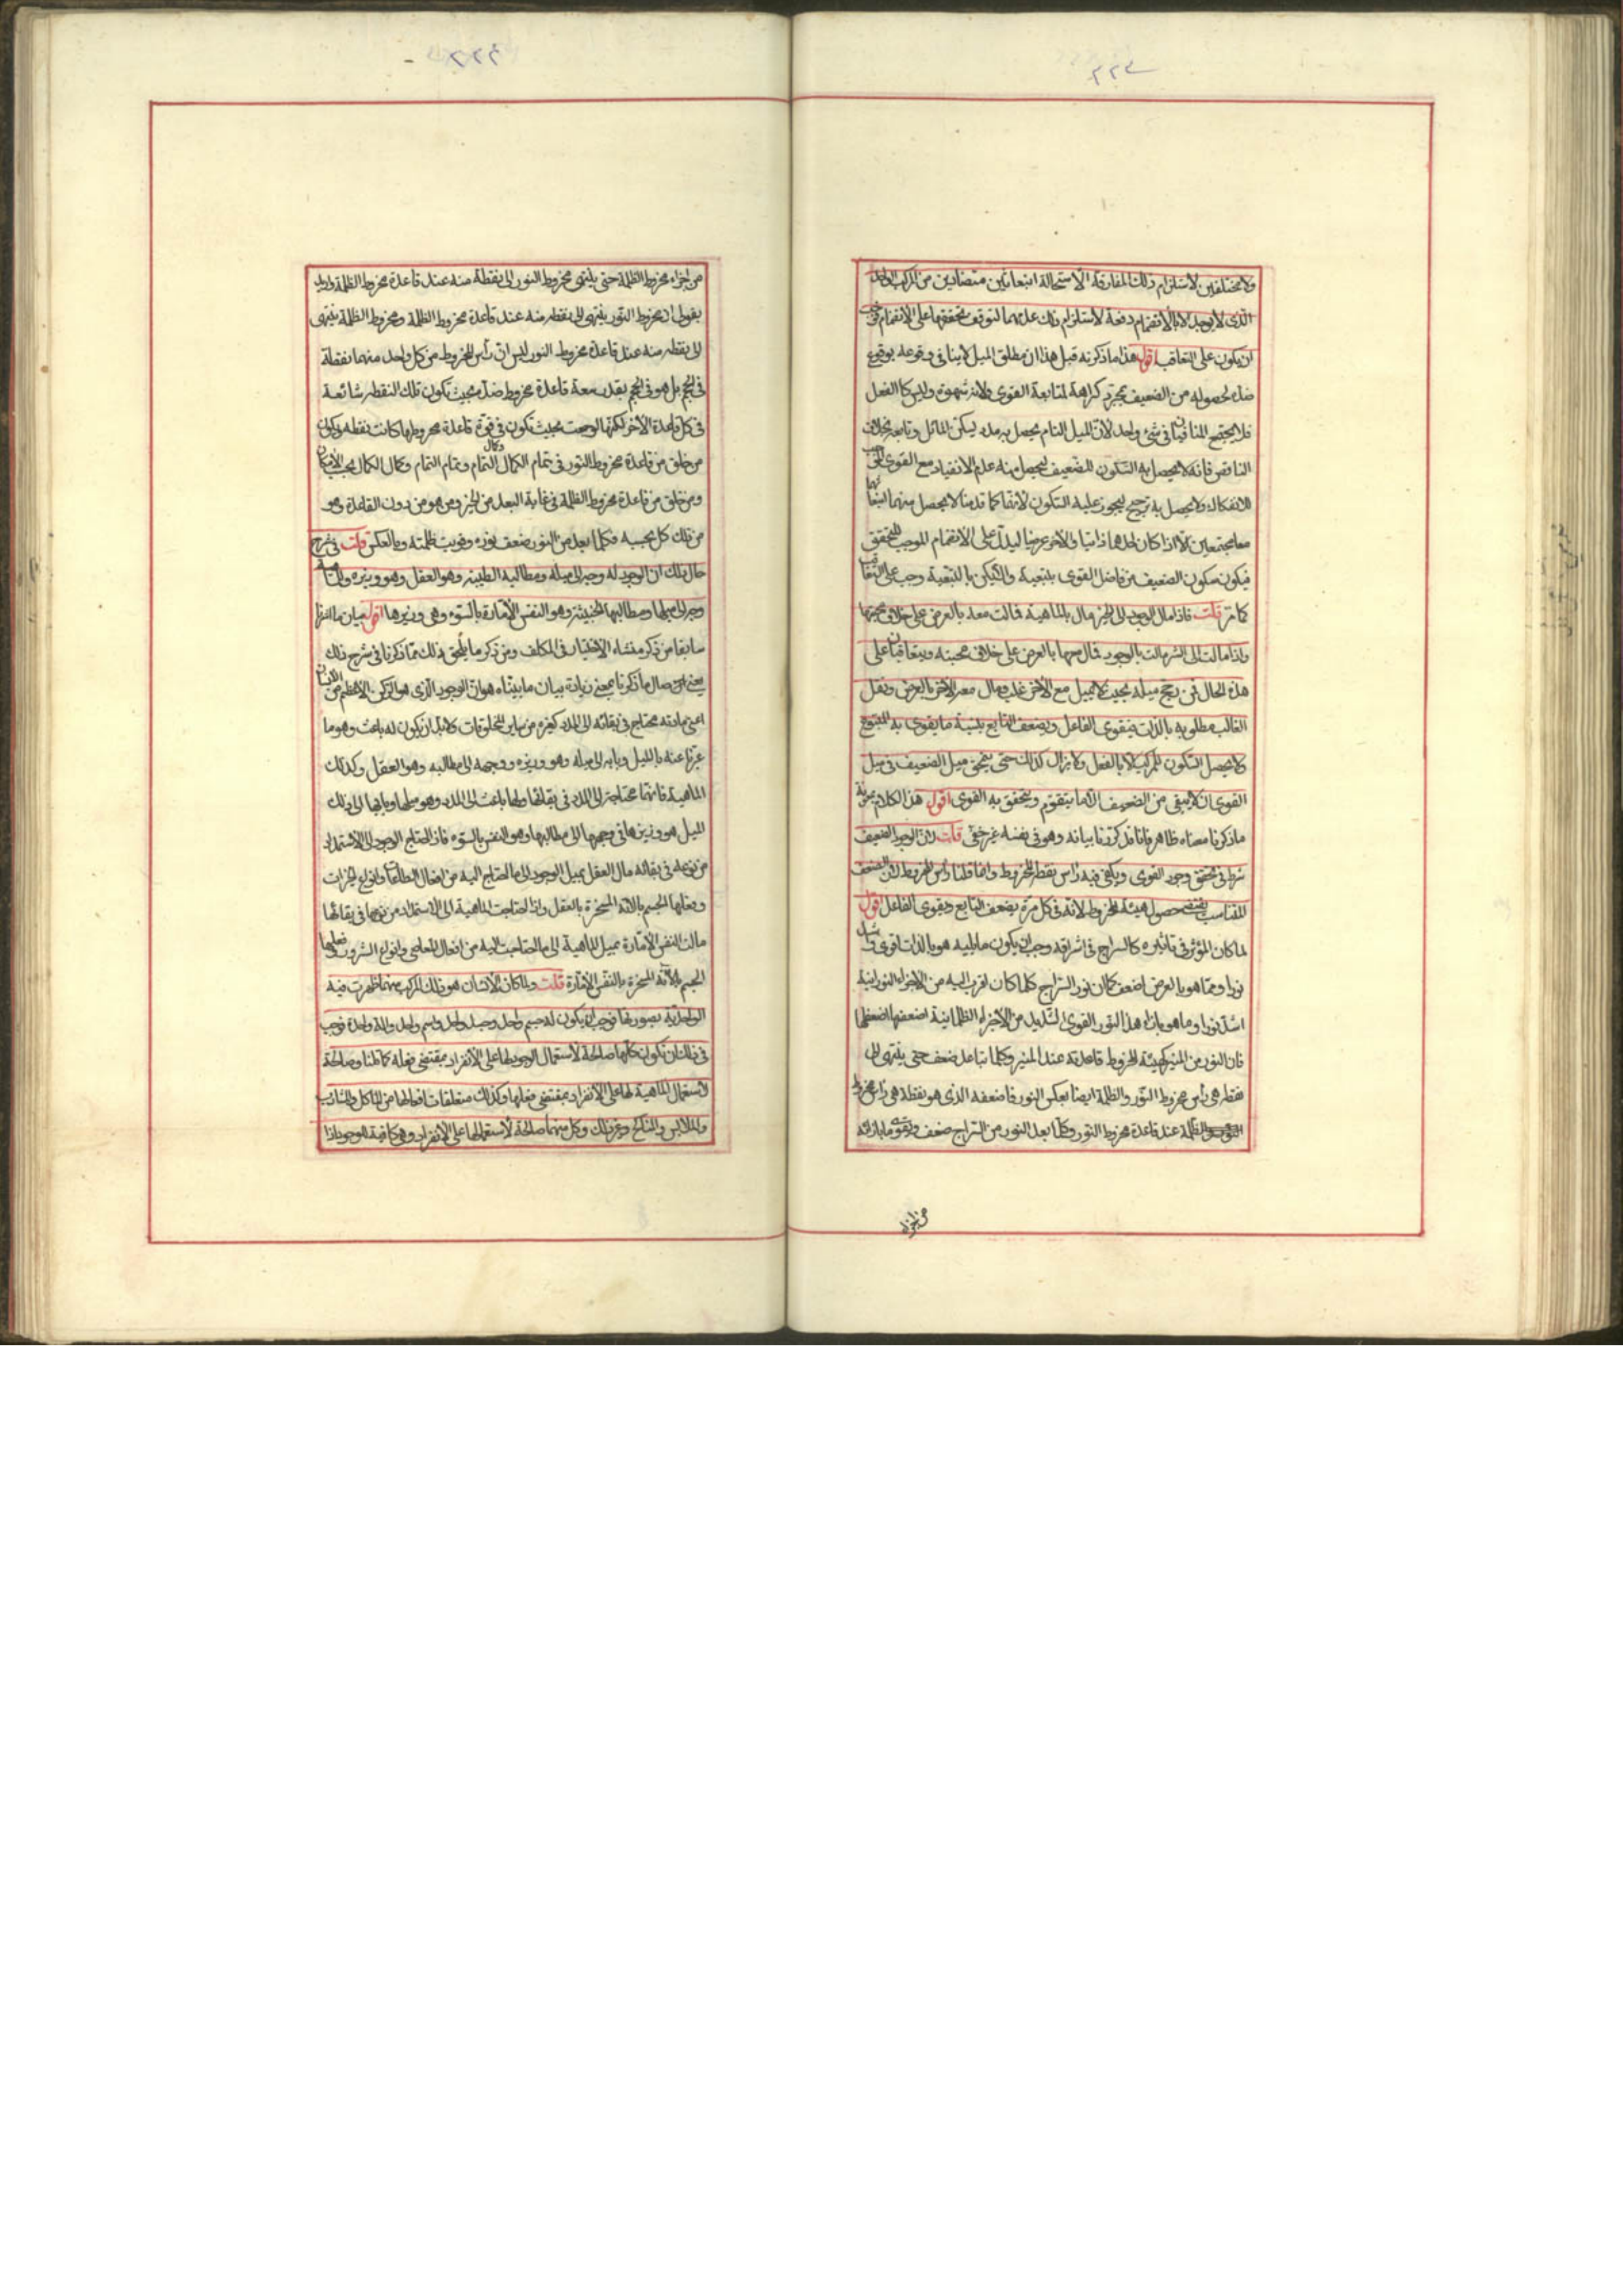 ٢٢٣
ولا مختلفين لاستلزام ذلك المفارقة الا استحالة انبعاثين متضادين من المركب الواحد
الذى لا يوجد الا بالانضمام دفعة لاستلزام ذلك عدمهما لتوقف تحققهما على الانضمام فوجب
ان يكون على التعاقب اقول هذا ما ذكرته قبل هذا ان مطلق الميل لا ينافى وقوعه بوقوع
ضده لحصوله من الضعيف بمجرد كراهة لمتابعة القوى ولانه شهوة وليس كالفعل
فلا يجتمع المتنافيان فى شئ واحد لان الميل التام يحصل به مدد يسكن المائل وتابعه بخلاف
الناقص فانه لا يحصل به السكون للضعيف ليحصل منه عدم الانقياد مع القوى الموجب
للانفكاك ولا يحصل به ترجح ليجوز عليه السكون لانها كما قدمنا لا يحصل منهما
معا مجتمعين الا اذا كان احدهما ذاتيا والاخر عرضيا ليدل على الانضمام الموجب للتحقق
فيكون سكون الضعيف من فاضل القوى بتبعية والتمكين بالتبعية وجب على التعاقب
كما مر قلت فاذا مال الوجود الى الخير مال بالماهية فمالت معه بالعرض على خلاف محبتها
واذا مالت الى الشر مالت بالوجود فمال معها بالعرض على خلاف محبته ويتعاقبان على
هذه الحال فمن رجح ميله بحيث لا يميل مع الاخر غلب ومال معه الاخر بالعرض وفعل
الغالب مطلوبه بالذات فيقوى الفاعل ويضعف التابع بنسبة ما يقوى به المتبوع
ولا يحصل السكون للمركب الا بالفعل ولا يزال كذلك حتى يمحق ميل الضعيف فى ميل
القوى انه لا يبقى من الضعيف الا ما يتقوم ويتحقق به القوى اقول هذا الكلام
ما ذكرنا معناه ظاهر فانا قد كررنا بيانه وهو فى نفسه غير خفى قلت لان الوجود الضعيف
شرط فى تحقق وجود القوى ويكفى فيه راس نقطة المخروط وانما قلنا راس المخروط لان الضعف
المتناسب يقتضى حصول هيئة المخروط لانه فى كل مرة يضعف التابع ويقوى الفاعل اقول
لما كان المؤثر فى تاثيره كالسراج فى اشراقه وجب ان يكون ما يليه هو بالذات اقوى واشد
نورا ومما هو بالعرض اضعف كما ان نور السراج كلما كان اقرب اليه من الاجزاء النورانية
اشد نورا وما هو بازاء هذا النور القوى الشديد من الاجزاء الظلمانية اضعفها اضعفها
فان النور من المنير كهيئة المخروط قاعدته عند المنير وكلما تباعد ضعف حتى ينتهى الى
نقطة هى راس مخروط النور والظلمة ايضا بعكس النور فاضعفه الذى هو نقطة هى راس مخروط
الظلمة عند قاعدة مخروط النور وكلما بعد النور من السراج ضعف وتقوى ما بازائه
من اجزاء
٢٢٤
من اجزاء مخروط الظلمة حتى ينتهى مخروط النور الى نقطة منه عند قاعدة مخروط الظلمة واريد
بقولى ان مخروط النور ينتهى الى نقطة منه عند قاعدة مخروط الظلمة ومخروط الظلمة ينتهى
الى نقطة منه عند قاعدة مخروط النور ليس ان راس المخروط من كل واحد منهما نقطة
فى الحجم بل هو فى الحجم بقدر سعة قاعدة مخروط ضده بحيث تكون تلك النقطة شائعة
فى كل قاعدة الاخر لكنها لو جمعت بحيث تكون فى قوة قاعدة مخروطها كانت نقطة ويكون
من خلق من قاعدة مخروط النور فى تمام الكمال وكمال التمام وتمام التمام وكمال الكمال بحسب الامكان
ومن خلق من قاعدة مخروط الظلمة فى غاية البعد من الخير ومن هو من دون القاعدة وهو
من ذلك كل بحسبه فكلما بعد من النور ضعف نوره وقويت ظلمته وبالعكس قلت فى شرح
حال ذلك ان الوجود له وجه الى ميله ومطالبه الطيبة وهو العقل وهو وزيره والماهية
وجه الى ميلها ومطالبها الخبيثة وهو النفس الامارة بالسوء وهى وزيرها اقول بيان ما اشرنا
سابقا من ذكر منشاء الاختيار فى المكلف ومن ذكر ما يلحق بذلك مما ذكرنا فى شرح ذلك
يعنى من حال ما ذكرنا بمعنى زيادة بيان ما بيناه هو ان الوجود الذى هو الركن الاعظم من الانسان
اعنى مادته محتاج فى بقائه الى المدد كغيره من سائر المخلوقات ولابد ان يكون له باعث وهو ما
عبرنا عنه بالميل وبابه الى ميله وهو وزيره ووجهه الى مطالبه وهو العقل وكذلك
الماهية فانها محتاجة الى المدد فى بقائها ولها باعث الى المدد وهو ميلها وبابها الى ذلك
الميل هو وزيرها فى وجهها الى مطالبها وهو النفس بالسوء فاذا احتاج الوجود الى الاستمداد
من نوعه فى بقائه مال العقل بميل الوجود الى ما احتاج اليه من افعال الطاعات وانواع الخيرات
وفعلها الجسم بالاته المسخرة بالعقل واذا احتاجت الماهية الى الاستمداد من نوعها فى بقائها
مالت النفس الامارة بميل الماهية الى ما احتاجت اليه من افعال المعاصى وانواع الشرور وفعلها
الجسم بالاته المسخرة بالنفس الامارة قلت ولما كان الانسان هو ذلك المركب منهما ظهرت فيه
الواحدية بصورتها فوجب ان يكون له جسم واحد وجسد واحد واسم واحد والة واحدة فوجب
فى ذلك ان تكون كلها صالحة لاستعمال الوجود لها على الانفراد بمقتضى فعله كما قلنا وصالحة
لاستعمال الماهية لها على الانفراد بمقتضى فعلها وكذلك متعلقات افعالها من الماكل والمشارب
والملابس والمناكح وغير ذلك وكل منهما صالحة لاستعمالها على الانفراد وهى كافية للوجود اذا